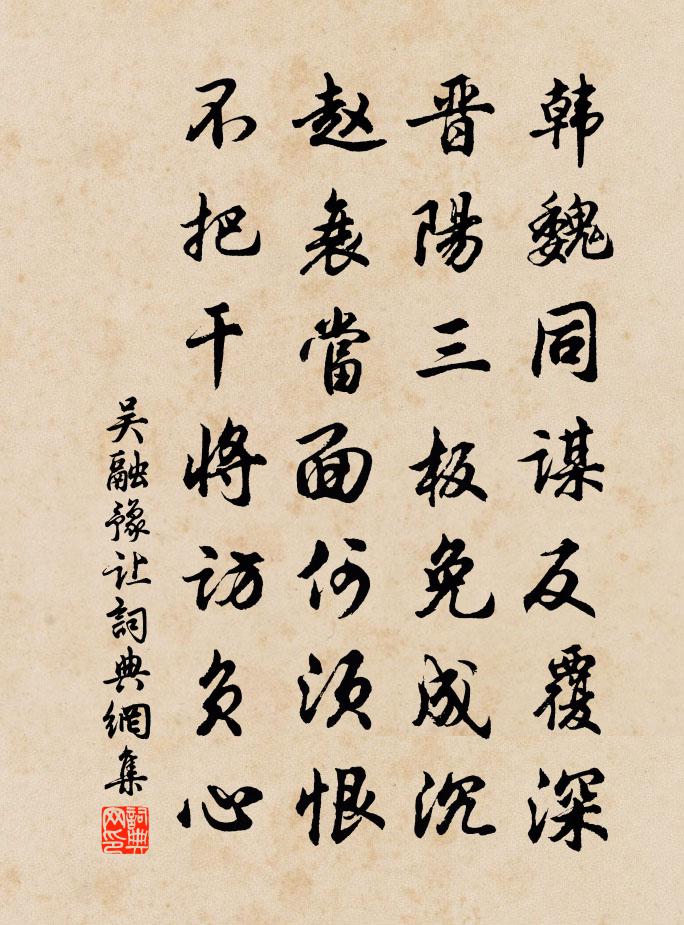 韩魏同谋反覆深
晋陽三板免成沉
赵襄當面何须恨
不把干将访负心
吴融豫让詞典網集
詞典网印